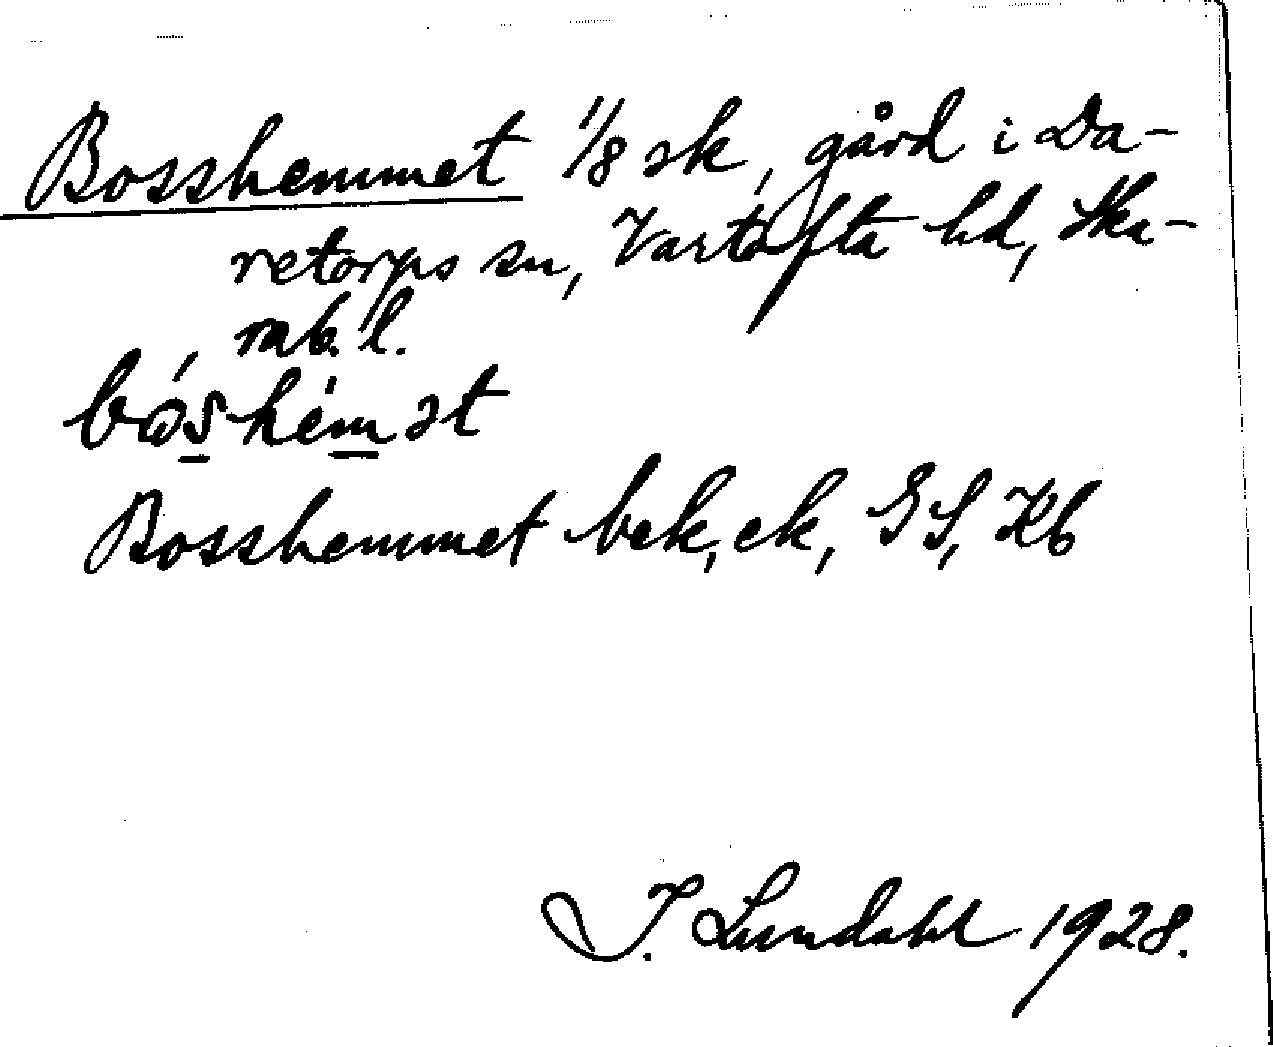 Bosshemmet 1/8 sk, gård i Da-
retorps sn, Vartofta hd, Ska-
rab. l.
bós hèmət
Bosshemmet bek, ek, GS, Kb
I. Lundahl 1928.